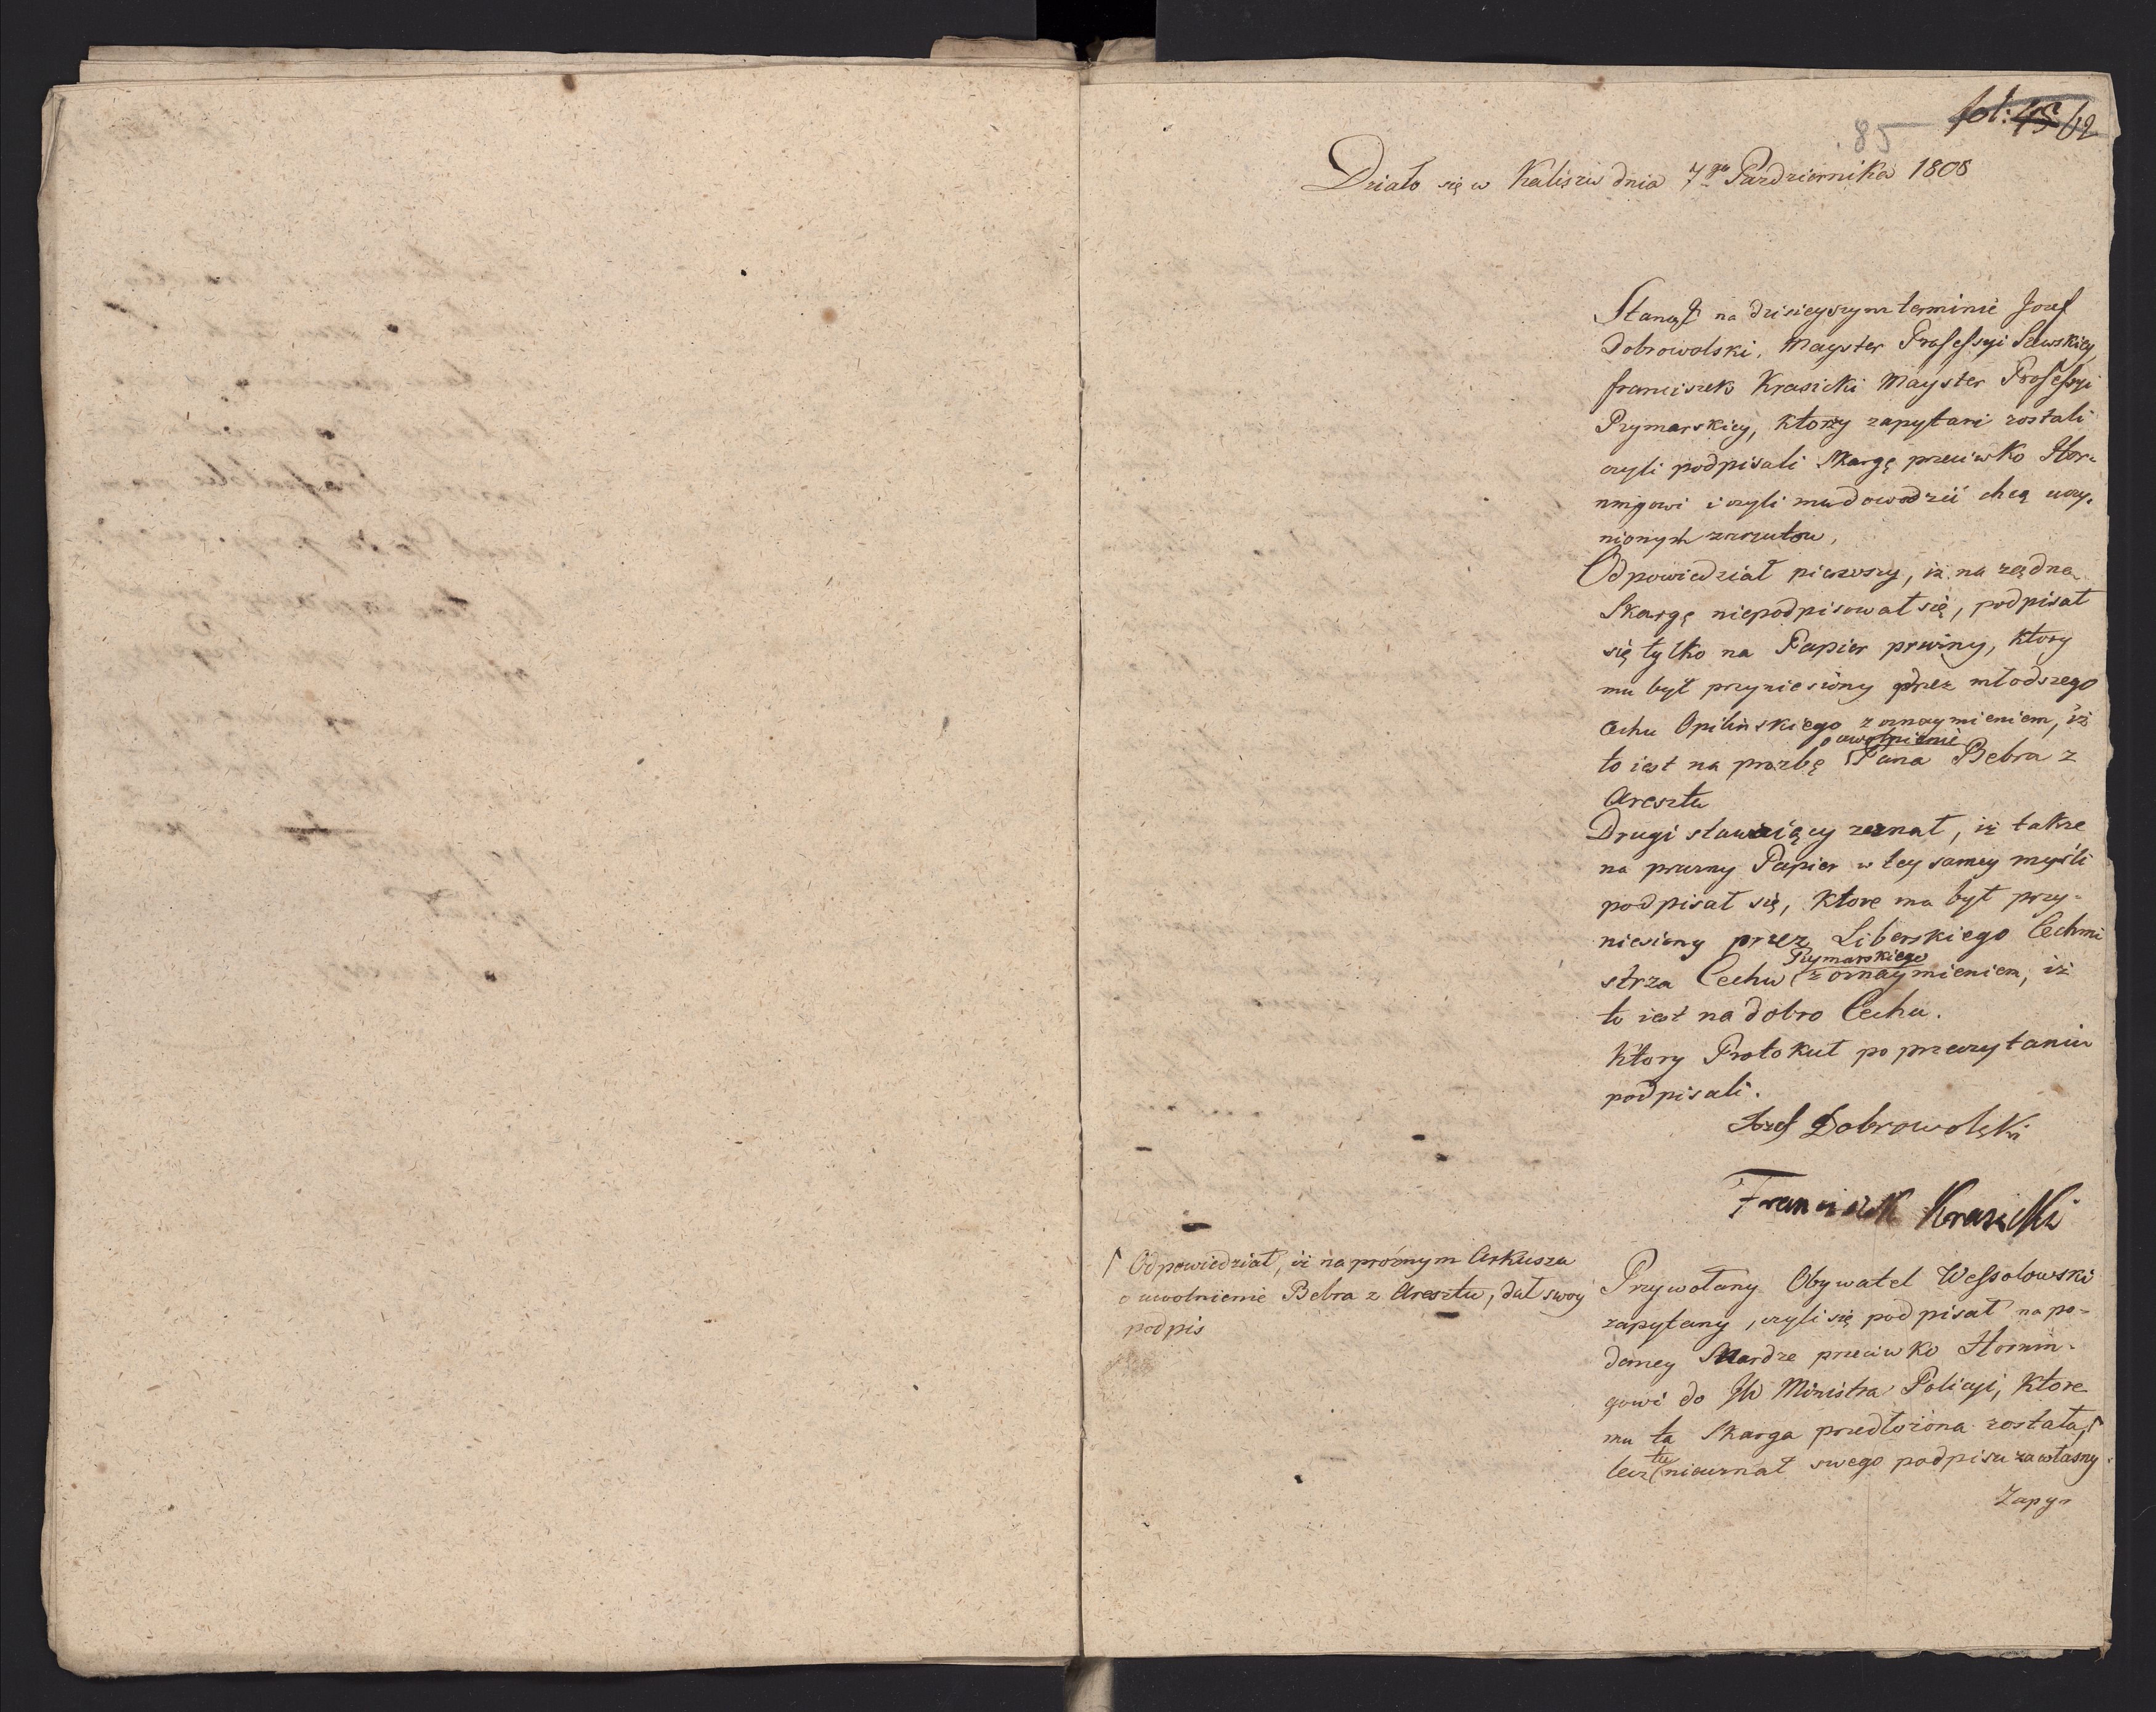 fol: 45 62
85
Działo się w Kaliszu dnia 7go Pazdziernika 1808
Stanął na dzisieyszym terminie Jozef
Dobrowolski, Mayster Professyi Szewskiey
franciszek Krasicki Mayster Professyi
Rymarskiey, ktorzy zapytani zostali
czyli podpisali Skargę przeciwko Hor-
nnigowi i czyli mu dowodzić chcą uczy-
nionych zarzutow,
Odpowiedział pierwszy, iż na żądną
Skargę niepodpisował się, podpisał
się tylko na Papier prożny, ktory
mu był przyniesiony przez młodszego
Cechu Opilinskiego z oznaymieniem, iż
to iest na prozbę o uwolnienie Pana Bebra z
Aresztu
Drugi stawaiący zeznał, iż takze
na prozny Papier w tey samey myśli
podpisał się, ktore mu był przy-
niesiony przez Liberskiego Cechmi
strza Cechu Rymarskiego z oznaymieniem, iż
to iest na dobro Cechu.
Ktory Protokuł po przeczytaniu
podpisali.
Jozef Dobrowolski
Franciszek Krasicki
Przywołany Obywatel Wessolowski
zapytany, czyli się podpisał na po-
daney Skardze przeciwko Hornin-
gowi do JW Ministra Policyi, ktore
mu ta Skarga przedłożona została,
lecz tu nieuznał swego podpisu za własny
Zapy-
Odpowiedział, iż na prożnym Arkuszu
o uwolnienie Bebra z Aresztu, dał swoy
podpis